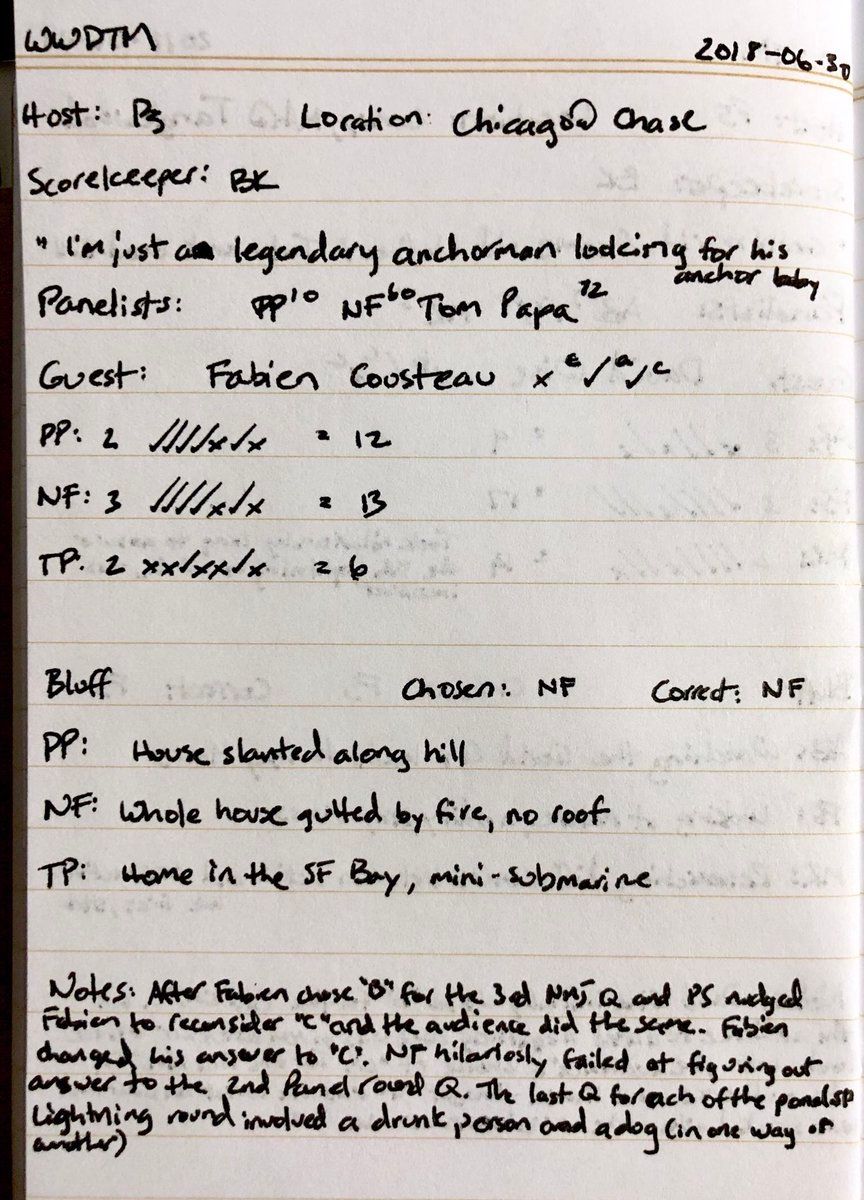 WWDTM
2018-06-30
Host: PS Location: Chicago @ Chase
Scorekeeper: BK
" I'm just a legendary anchorman looking for his
anchor baby
Panelists: PP 10 NF 60 Tom Papa 72
Guest: Fabien Cousteau x c ✓ a ✓ c
PP: 2 ✓✓✓✓x✓x = 12
NF: 3 ✓✓✓✓x✓x = 13
TP: 2 xx✓xx✓x = 6
Bluff Chosen: NF Correct: NF
PP: House slanted along hill
NF: Whole house gutted by fire, no roof
TP: Home in the SF Bay, mini-submarine
Notes: After Fabien chose "B" for the 3rd NMJ Q and PS nudged
Fabien to reconsider "C" and the audience did the same. Fabien
changed his answer to "C". NF hilariosly failed at figuring out
answer to the 2nd Panel round Q. The last Q for each of the panelist
Lightning round involved a drunk person and a dog (in one way or
another)